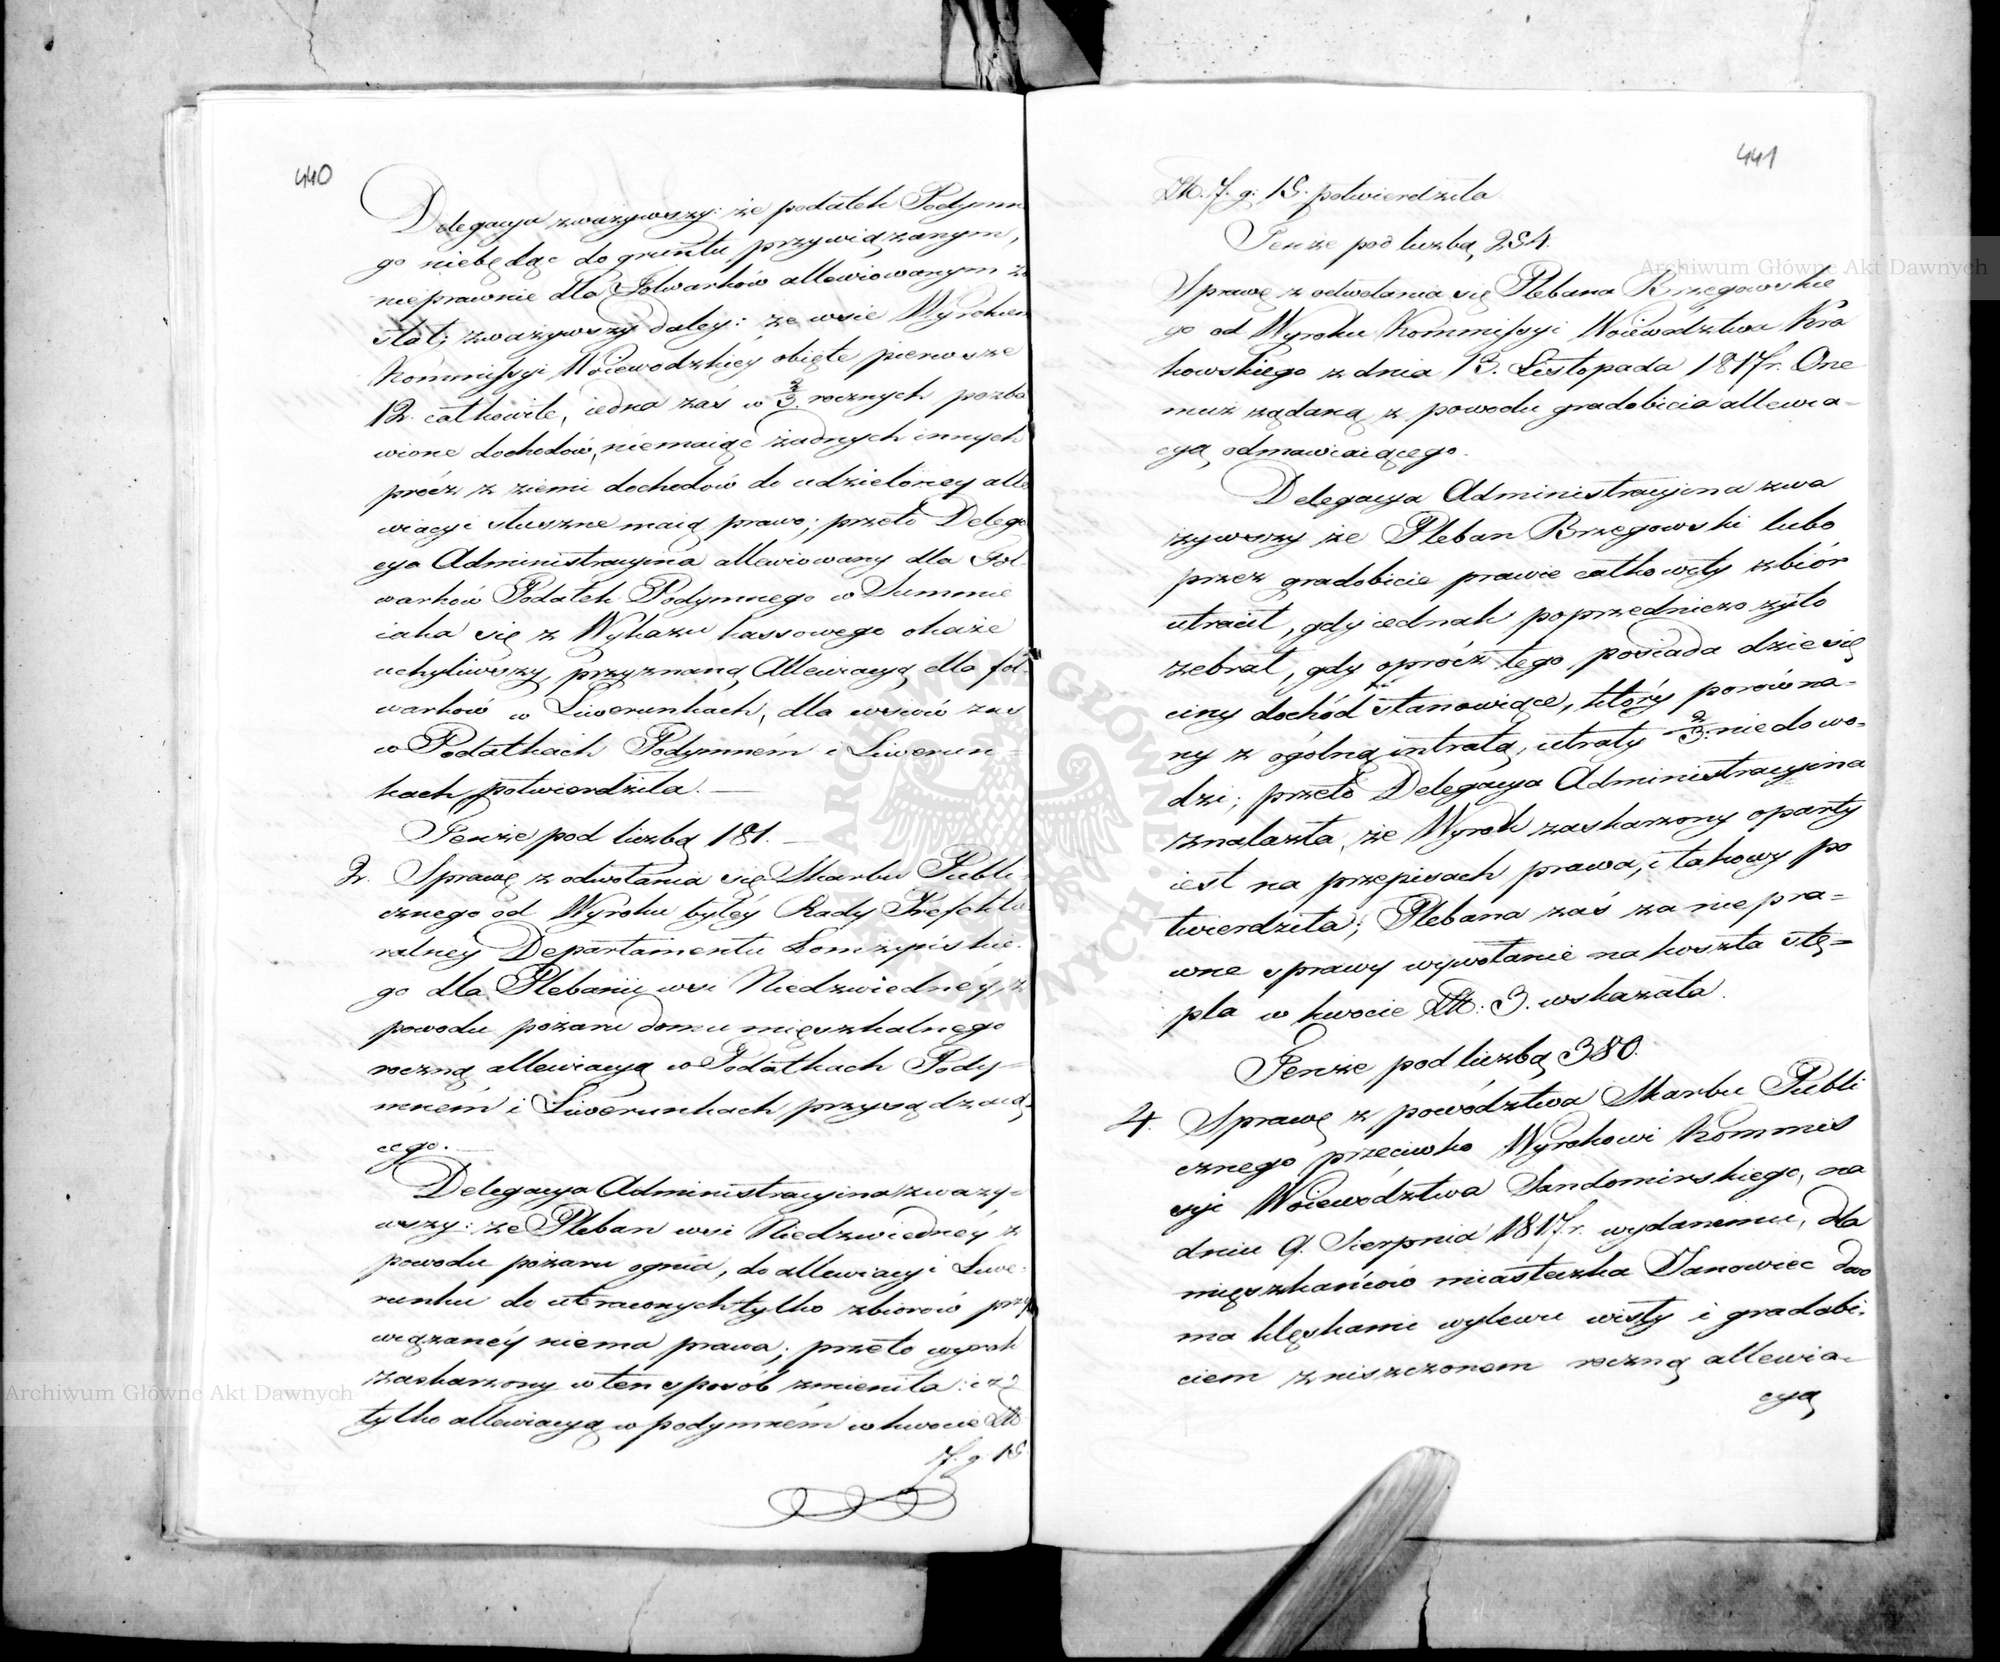 440
Delegacya zważywszy: że podatek Podymne
go niebędąc do gruntu przywiązanym,
nieprawnie dla Folwarków allewiowanym zo
stał; zważywszy daley: że wsie Wyrokiem
Kommissyi Woiewodzkiey obięte pierwsze
12. całkowite, iedna zaś w 2/3. rocznych pozba
wione dochodów, niemaiąc żadnych innych
prócz z ziemi dochodów do udzieloney alle
wiacyi słuszne maią prawo; przeto Delega
cya Administracyina allewiowany dla Fol
warków Podatek Podymnego w Summie
iaka się z Wykazu kassowego okaże
uchyliwszy, przyznaną Allewiacyą dla fol-
warków w Liwerunkach, dla wsiów zaś
w Podatkach Podymném i Liwerun-
kach potwierdziła. —
Tenże pod liczbą 181. —
Sprawę z odwołania się Skarbu Publi
cznego od Wyroku byłéy Rady Prefektu
ralney Departamentu Łomżyńskie-
go dla Plebanii wsi Niedzwiednéy, z
powodu pożaru domu mięszkalnego
roczną allewiacyą w Podatkach Pody-
mném i Liwerunkach przysądzaią-
cego. —
Delegacya Administracyina zważy-
wszy: że Pleban wsi Niedzwiednéy z
powodu pożaru ognia, do allewiacyi Liwe-
runku do utraconych tylko zbiorów przy
wiązanéy niema prawa; przeto wyrok
zaskarzony w ten sposób zmieniła: iż
tylko allewiacyą w podymném w kwocie Zł
7. g. 15
441
Zł. 7. g. 15. potwierdziła.
Tenże pod liczbą 254.
Sprawę z odwołania się Plebana Brzegowskie
go od Wyroku Kommissyi Woiewództwa Kra
kowskiego z dnia 13. Listopada 1817r. One
muż żądaną z powodu gradobicia allewia-
cyą odmawiaiącego.
Delegacya Administracyina zwa
żywszy że Pleban Brzegowski lubo
przez gradobicie prawie całkowity zbiór
utracił, gdy iednak poprzedniczo żyto
zebrał, gdy oprócz tego posiada dziesię
ciny dochód stanowiące, który porówna-
ny z ogólną intratą, utraty 2/3. niedowo-
dzi; przeto Delegacya Administracyina
znalazła, że Wyrok zaskarzony oparty
iest na przepisach prawa, i takowy po
twierdziła; Plebana zaś za niepra-
wne sprawy wywołanie na koszta stę-
pla w kwocie Zł: 3. wskazała.
Tenże pod liczbą 380.
4. Sprawę z powództwa Skarbu Publi
cznego przeciwko Wyrokowi Kommis
syi Woiewództwa Sandomirskiego, na
dniu 9. Sierpnia 1817r. wydanemu, dla
mięszkańców miasteczka Janowiec dwo
ma klęskami wylewu wisły i gradobi-
ciem zniszczonem roczną allewia-
cyą
Archiwum Główne Akt Dawnych
Archiwum Główne Akt Dawnych
ARCHIWUM GŁÓWNE AKT DAWNYCH